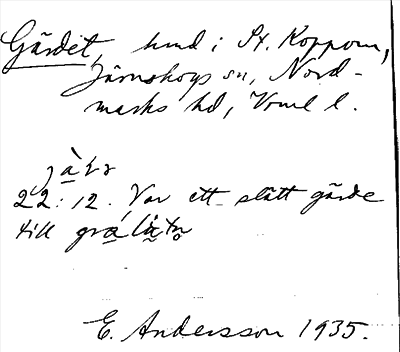 Gärdet, hmd i St. Koppom,
Järnskogs sn, Nord-
marks hd, Vrml l.
22:12. Var ett slätt gärde
till
E. Andersson 1935.